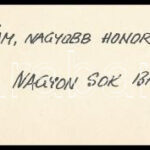 M, NAGYOBB HONOR
NAGYON SOK